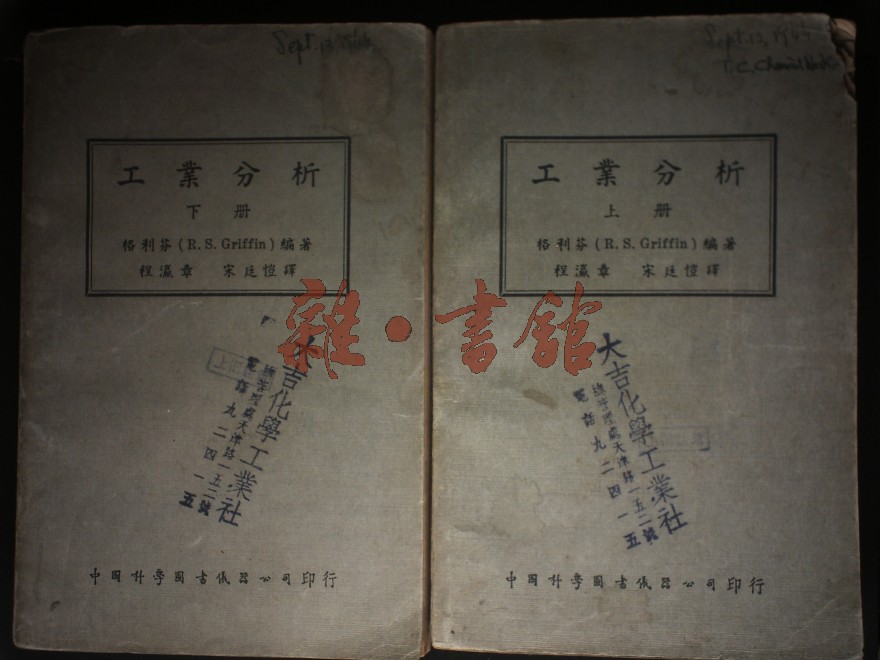 Sept. 13, 1944
工業分析
下册
格利芬(R.S.Griffin)編著
程瀛章 宋廷愷譯
大吉化學工業社
總管理處天津路一五二號
電話九二四一五
中國科學圖書儀器公司印行
Sept. 13, 1944
T. C.
工業分析
上册
格利芬(R.S.Griffin)編著
程瀛章 宋廷愷譯
大吉化學工業社
總管理處天津路一五二號
電話九二四一五
中國科學圖書儀器公司印行
雜·書館